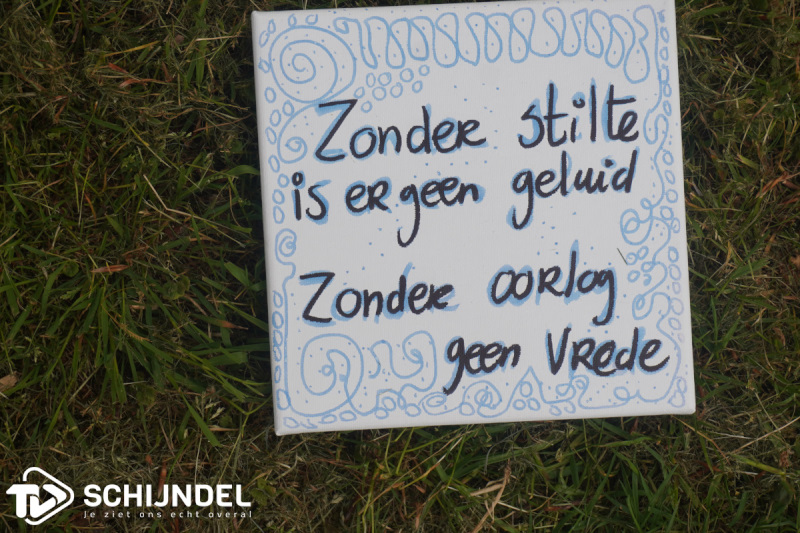 Zonder stilte
is er geen geluid
Zonder oorlog
geen Vrede
TV SCHIJNDEL
je ziet ons echt overal